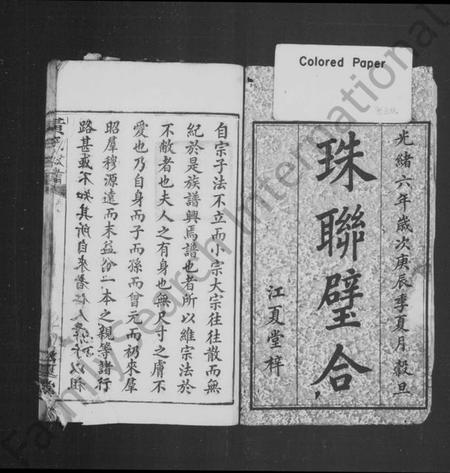 Colored Paper
光緒六年歲次庚辰季夏月穀旦
珠聯璧合
江夏堂梓
自宗子法不立而小宗大宗往往散而無
紀於是族譜興焉譜也者所以維宗法於
不敝者也夫人之有身也無尺寸之膚不
愛也乃自身而子而孫而曾元而礽來羣
昭羣穆源遠而末益分一本之親等諸行
路甚哉不
FamilySearch International